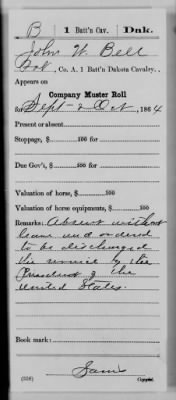 B | 1 Batt'n Cav. | Dak.
John W. Bell
, Co. A, 1 Batt'n Dakota Cavalry.
Appears on
Company Muster Roll
for Sept & Oct, 1864
Present or absent
Stoppage, $ 100 for
Due Gov't, $ 100 for
Valuation of horse, $ 100
Valuation of horse equipments, $ 100
Remarks: Absent without
leave and ordered
to be discharged
the service by the
President of the
United States.
Book mark:
(358)
Copyist.